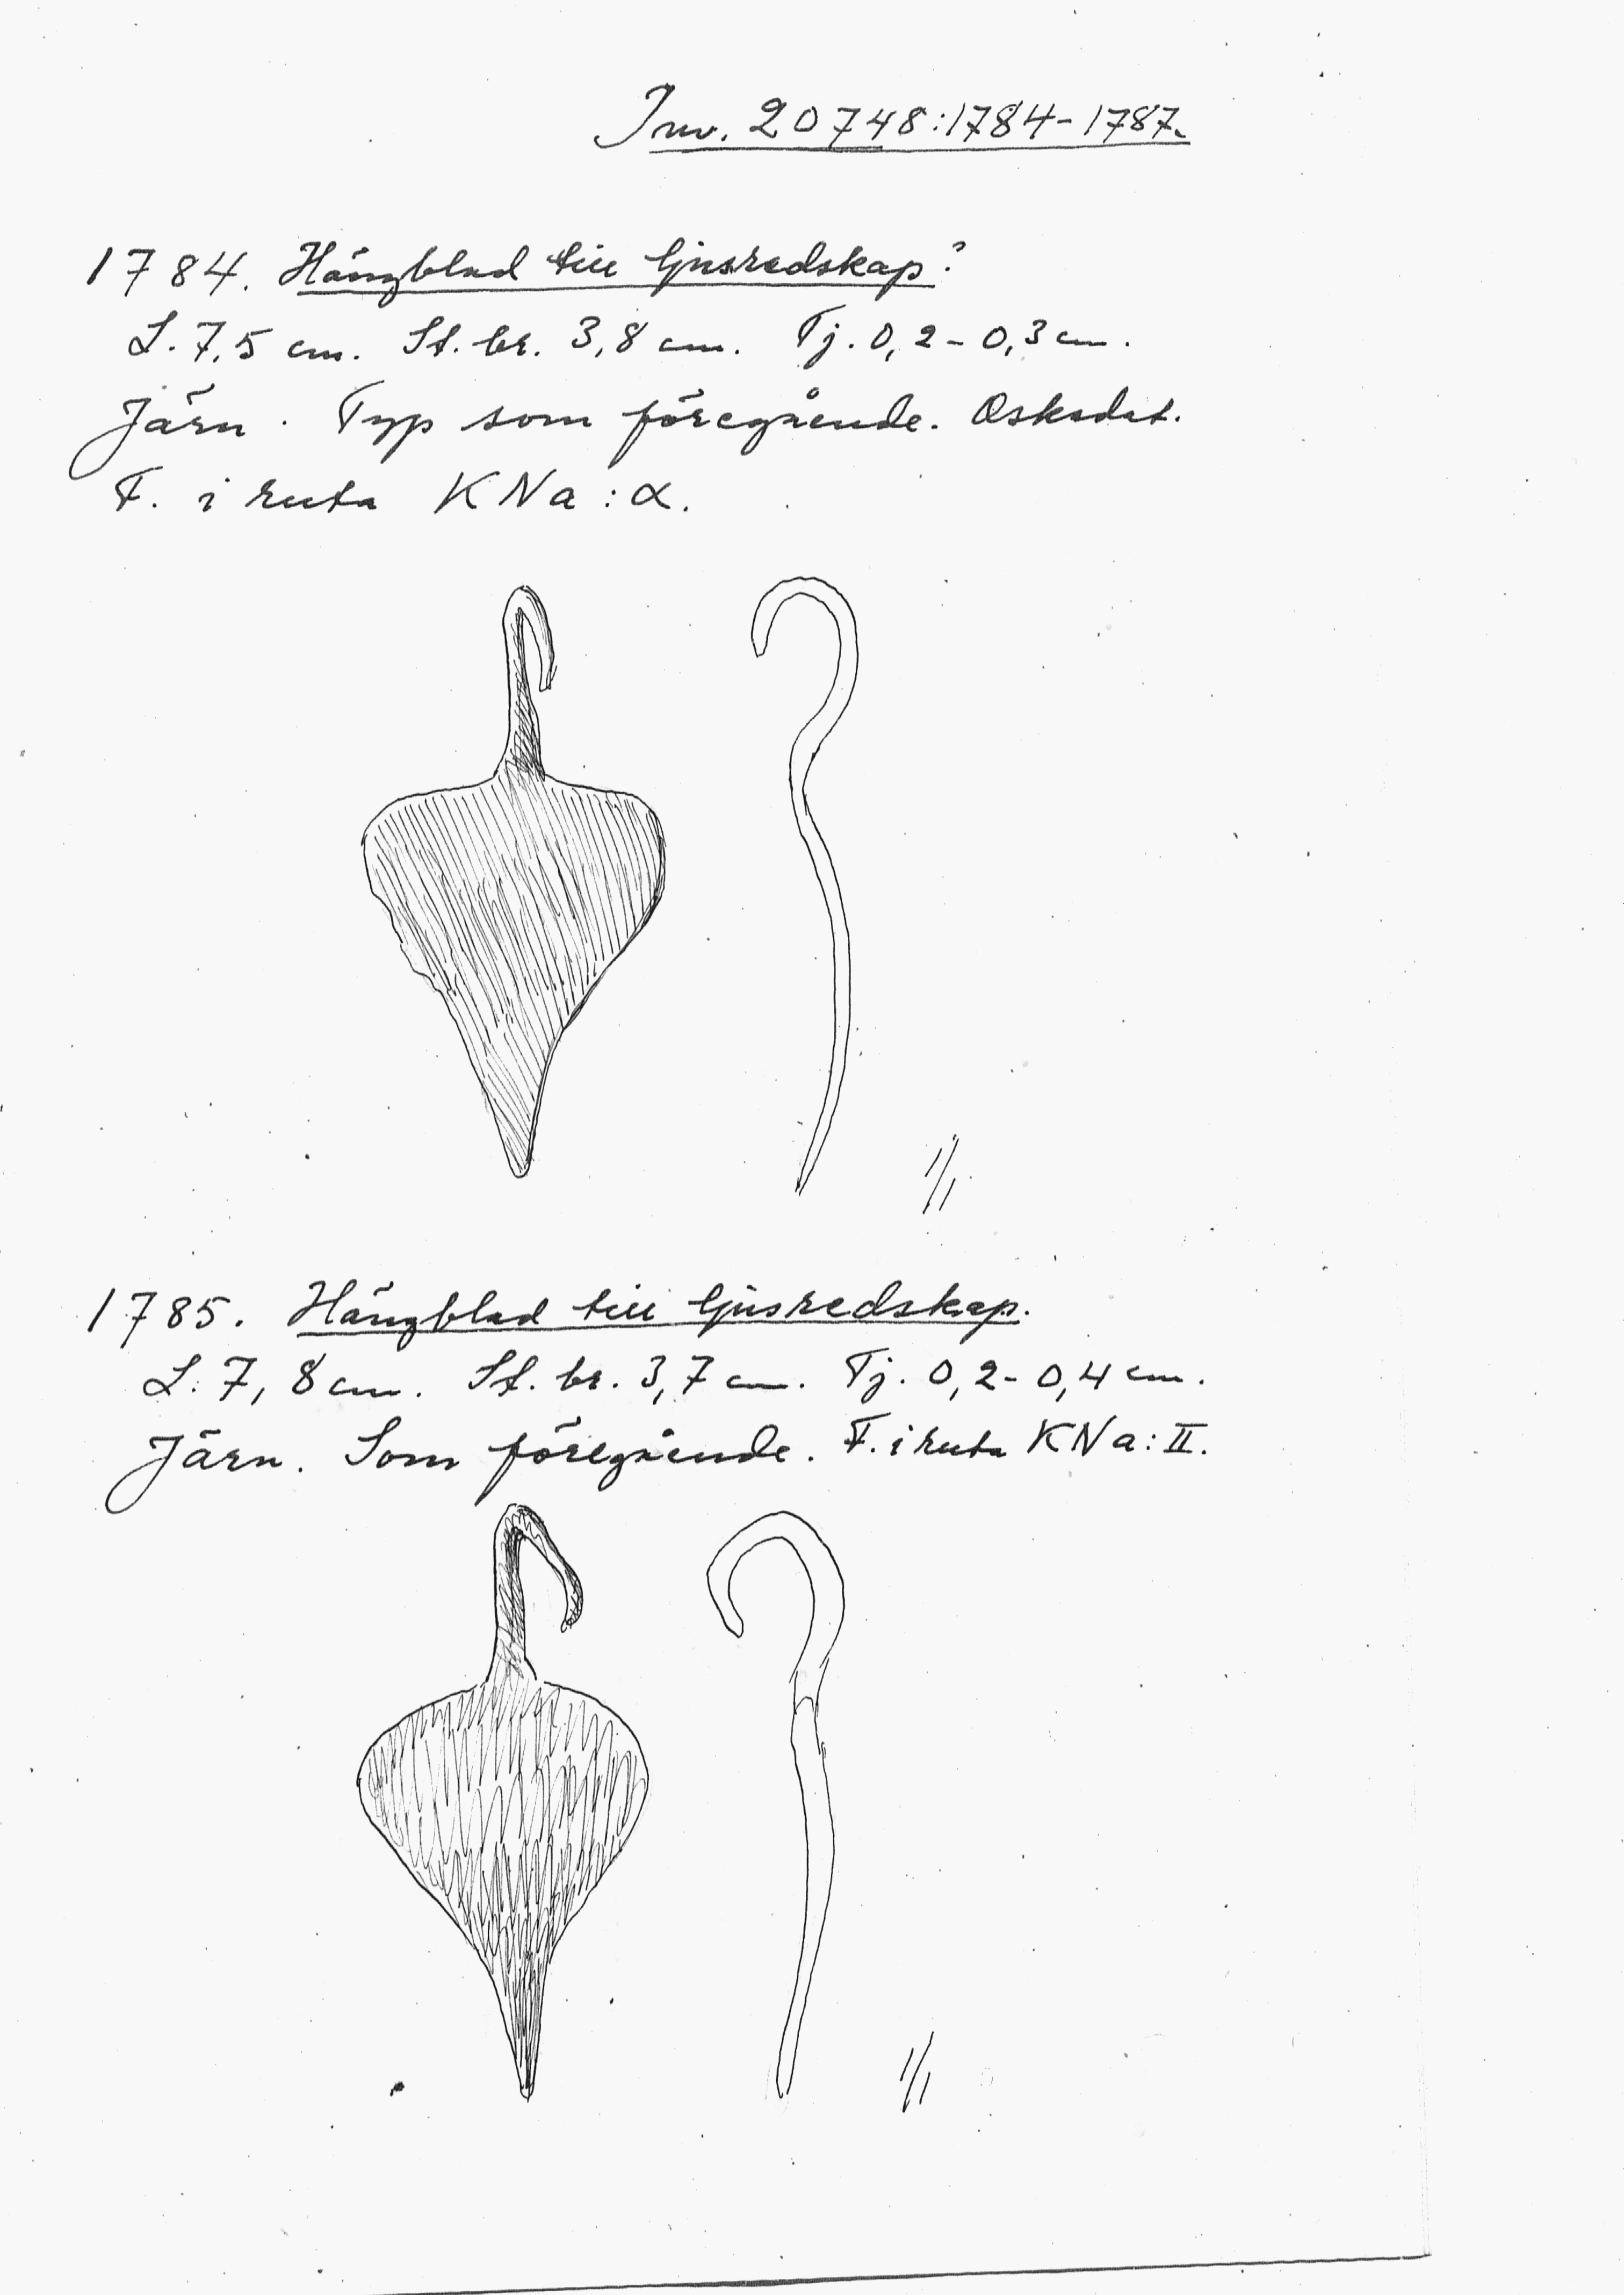 Inv. 20748:1784-1787.
1784. Hängblad till ljusredskap?
L. 7,5 cm. St. br. 3,8 cm. Tj. 0,2-0,3 cm.
Järn. Typ som föregående. Oskadat.
F. i ruta KNa:α.
1/1
1785. Hängblad till ljusredskap.
L. 7,8 cm. St. br. 3,7 cm. Tj. 0,2-0,4 cm.
Järn. Som föregående. F. i ruta KNa:II.
1/1